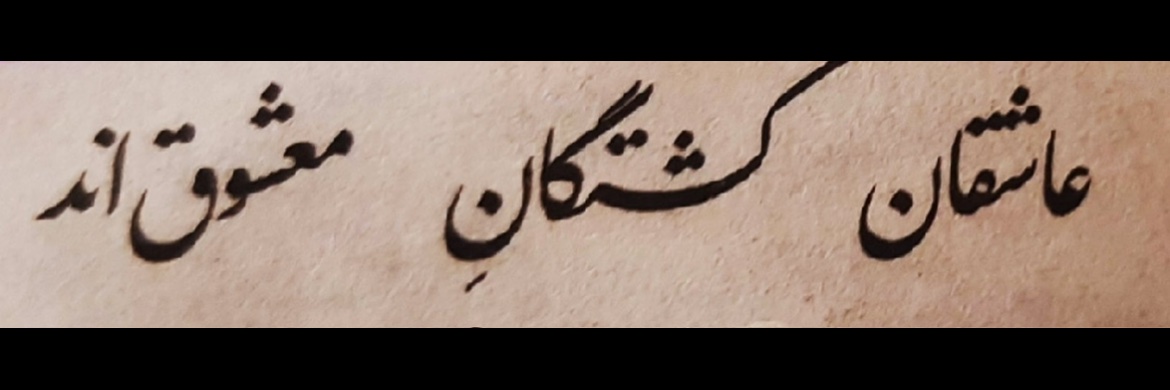 عاشقان کشتگانِ معشوق اند